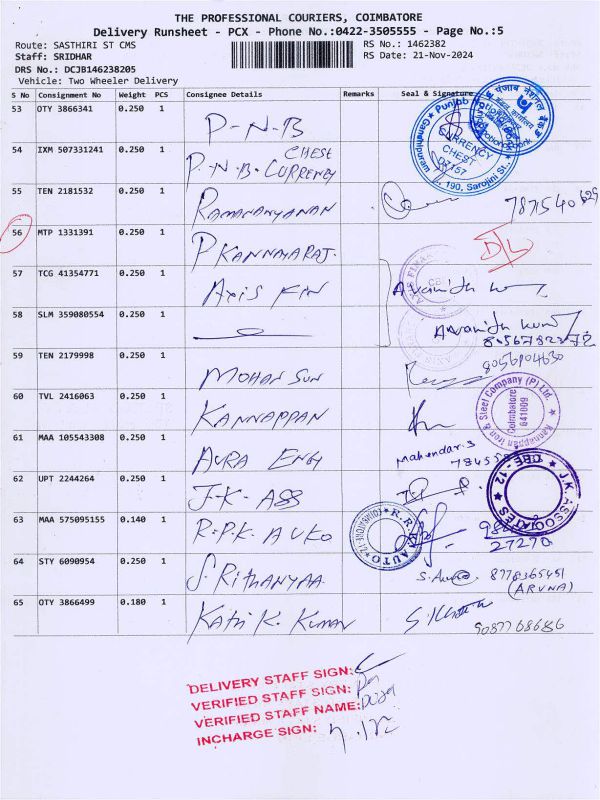 THE PROFESSIONAL COURIERS, COIMBATORE
Delivery Runsheet - PCX - Phone No.:0422-3505555 - Page No.:5
Route: SASTHIRI ST CMS
RS No.: 1462382
Staff: SRIDHAR
RS Date: 21-Nov-2024
DRS No.: DCJB146238205
Vehicle: Two Wheeler Delivery
S No Consignment No Weight PCS Consignee Details Remarks Seal & Signature
53 OTY 3866341 0.250 1 P-N-B
Punjab National Bank
CURRENCY CHEST
Gandhipuram
190, Sarojini St.,
पंजाब नैशनल बैंक
54 IXM 507331241 0.250 1 P.N.B. CURRENCY CHEST
55 TEN 2181532 0.250 1 RAMANANYANAN 7871540629
56 MTP 1331391 0.250 1 P KANNAYARAJ. D/L
57 TCG 41354771 0.250 1 AXIS FIN
58 SLM 359080554 0.250 1
59 TEN 2179998 0.250 1 MOHAN SUN 8056904630
60 TVL 2416063 0.250 1 KANNAPPAN
Kannappan Iron & Steel Company (P) Ltd.
Coimbatore
641009
61 MAA 105543308 0.250 1 AURA ENGG Mahendar.S
62 UPT 2244264 0.250 1 J-K-ASS
J.K. ASSOCIATES
CBE-12
63 MAA 575095155 0.140 1 R.P.K AUKO
64 STY 6090954 0.250 1 S. RITHANYAA 8778365451
(ARUNA)
65 OTY 3866499 0.180 1 KATHI K. KUMAN 9087768686
DELIVERY STAFF SIGN:
VERIFIED STAFF SIGN:
VERIFIED STAFF NAME:
INCHARGE SIGN: